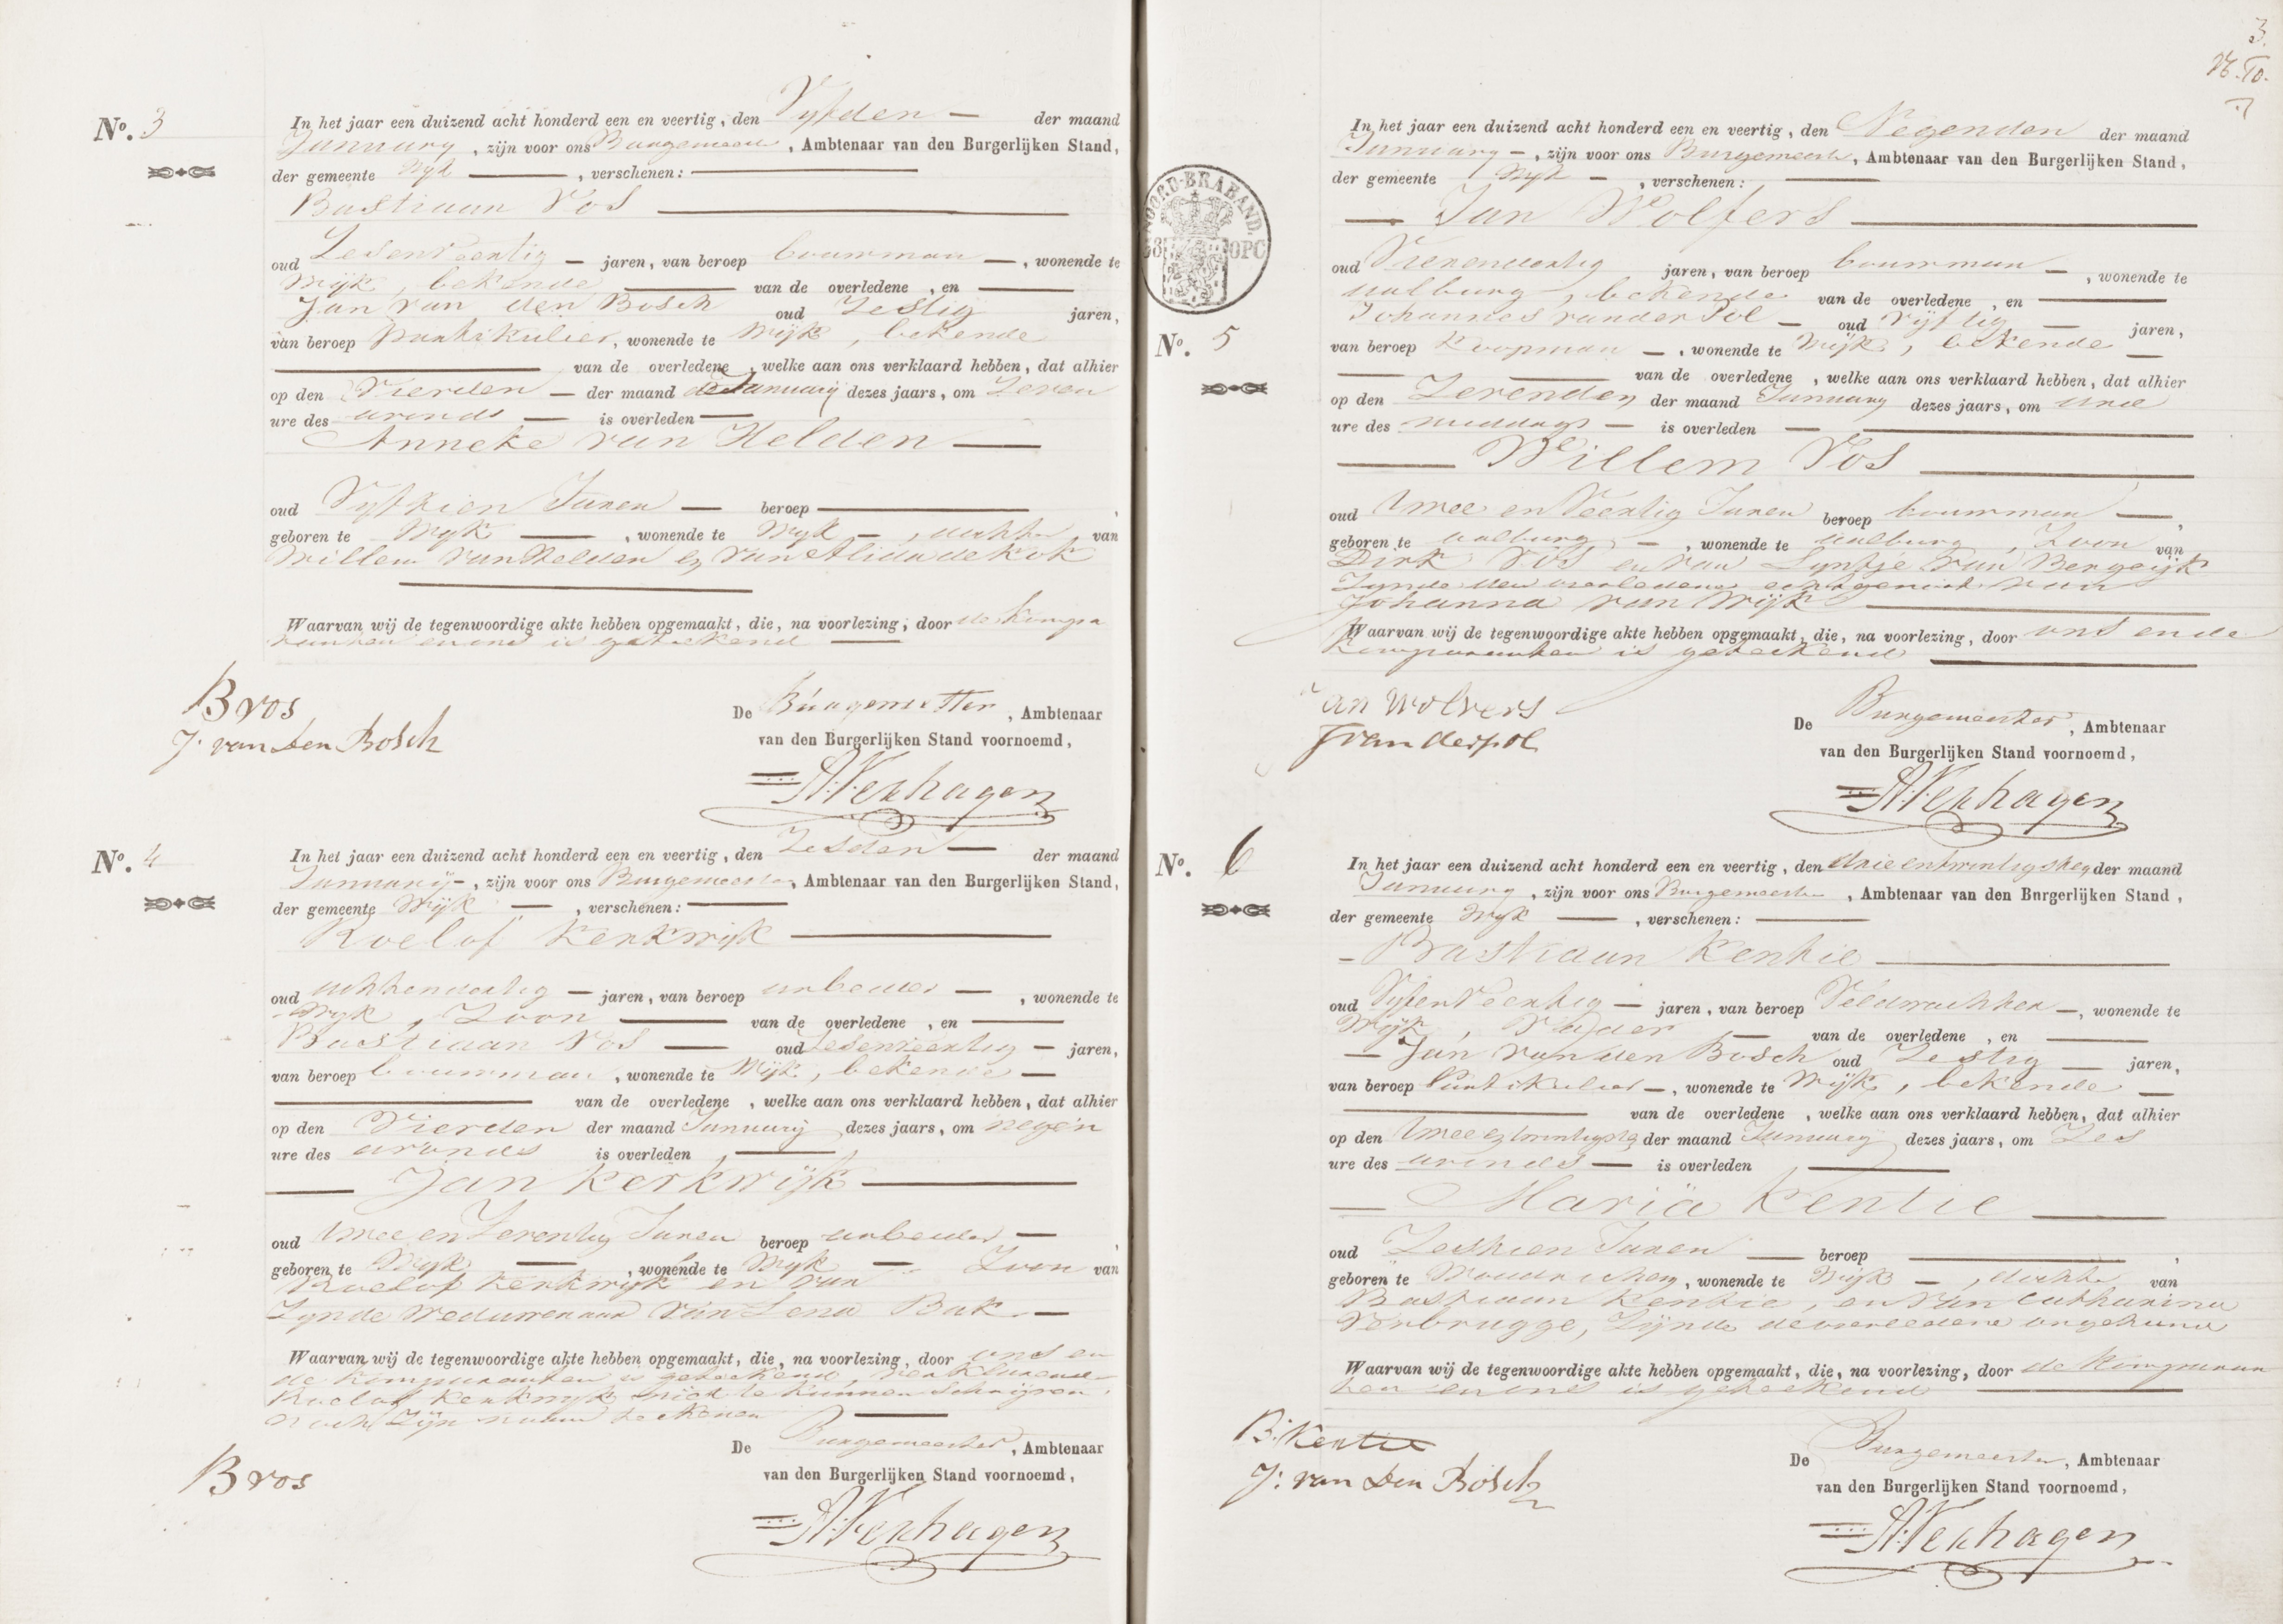 No. 3
In het jaar een duizend acht honderd een en veertig, den Vyfden — der maand
January, zijn voor ons Burgemeester, Ambtenaar van den Burgerlijken Stand,
der gemeente Wyk —, verschenen: —
Bastiaan Vos —
oud Zesenveertig — jaren, van beroep bouwman —, wonende te
Wijk, bekende — van de overledene, en —
Jan van den Bosch oud Zestig jaren,
van beroep partikulier, wonende te Wijk, bekende
— van de overledene, welke aan ons verklaard hebben, dat alhier
op den Vierden — der maand January dezes jaars, om Zeven
ure des avonds — is overleden —
Anneke van Helden —
oud Vyftien Jaren — beroep —,
geboren te Wyk —, wonende te Wyk —, dochter van
Willem van Helden en van Alida de Kok
—
Waarvan wij de tegenwoordige akte hebben opgemaakt, die, na voorlezing, door de kompa
ranten en ons is geteekend —
B vos
J. van den Bosch
De Burgemeester, Ambtenaar
van den Burgerlijken Stand voornoemd,
A. Verhagen
No. 4
In het jaar een duizend acht honderd een en veertig, den Zesden — der maand
Januarij —, zijn voor ons Burgemeester, Ambtenaar van den Burgerlijken Stand,
der gemeente Wijk —, verschenen: —
Roelof Kerkwijk —
oud achtendertig — jaren, van beroep arbeider —, wonende te
Wyk, Zoon — van de overledene, en —
Bastiaan Vos — oud Zesenveertig — jaren,
van beroep bouwman, wonende te Wijk, bekende —
— van de overledene, welke aan ons verklaard hebben, dat alhier
op den Vierden der maand Januarij dezes jaars, om negen
ure des avonds is overleden —
— Jan Kerkwijk —
oud twee en Zeventig Jaren beroep arbeider —,
geboren te Wyk —, wonende te Wyk — Zoon van
Roelof Kerkwijk en van
Zynde Weduwenaar van Lena Bak —
Waarvan wij de tegenwoordige akte hebben opgemaakt, die, na voorlezing, door ons en
de komparanten is geteekend, verklarende
Roelof Kerkwijk niet te kunnen Schrijven,
noch Zijn naam teekenen —
De Burgemeester, Ambtenaar
van den Burgerlijken Stand voornoemd,
B vos
A. Verhagen
3.
NOORD-BRABAND.
38 OPC
No. 5
In het jaar een duizend acht honderd een en veertig, den Negenden der maand
January —, zijn voor ons Burgemeester, Ambtenaar van den Burgerlijken Stand,
der gemeente Wyk —, verschenen: —
— Jan Wolfers —
oud Vierendertig jaren, van beroep bouwman —, wonende te
aalburg, bekende van de overledene, en —
Johannes van der Pol — oud Vijftig — jaren,
van beroep Koopman —, wonende te Wijk, bekende —
— van de overledene, welke aan ons verklaard hebben, dat alhier
op den Zevenden der maand January dezes jaars, om drie
ure des middags — is overleden —
— Willem Vos —
oud twee en Veertig Jaren beroep bouwman —,
geboren te aalburg —, wonende te aalburg, Zoon van
Dirk Vos en van Lyntje van Bergeijk
Zynde den overledene echtgenoot van
Johanna van Wijk —
Waarvan wij de tegenwoordige akte hebben opgemaakt, die, na voorlezing, door ons en de
Komparanten is geteekend —
Jan Wolvers
J van der pol
De Burgemeester, Ambtenaar
van den Burgerlijken Stand voornoemd,
A. Verhagen
No. 6
In het jaar een duizend acht honderd een en veertig, den drie entwintigsten der maand
January, zijn voor ons Burgemeester, Ambtenaar van den Burgerlijken Stand,
der gemeente Wyk —, verschenen: —
— Bastiaan Kentie —
oud Vyfenveertig — jaren, van beroep Veldwachter —, wonende te
Wijk, Vader — van de overledene, en —
— Jan van den Bosch oud Zestig — jaren,
van beroep Partikulier —, wonende te Wijk, bekende —
— van de overledene, welke aan ons verklaard hebben, dat alhier
op den twee en twintigste der maand Januarij dezes jaars, om Zes
ure des avonds — is overleden —
— Maria Kentie —
oud Zestien Jaren — beroep —,
geboren te Woudrichem, wonende te Wijk —, dochter van
Bastiaan Kentie, en van Catharina
Verbrugge, Zijnde de overledene ongehuwd
Waarvan wij de tegenwoordige akte hebben opgemaakt, die, na voorlezing, door de Komparan
ten en ons is geteekend —
B. Kentie
J. van den Bosch
De Burgemeester, Ambtenaar
van den Burgerlijken Stand voornoemd,
A. Verhagen